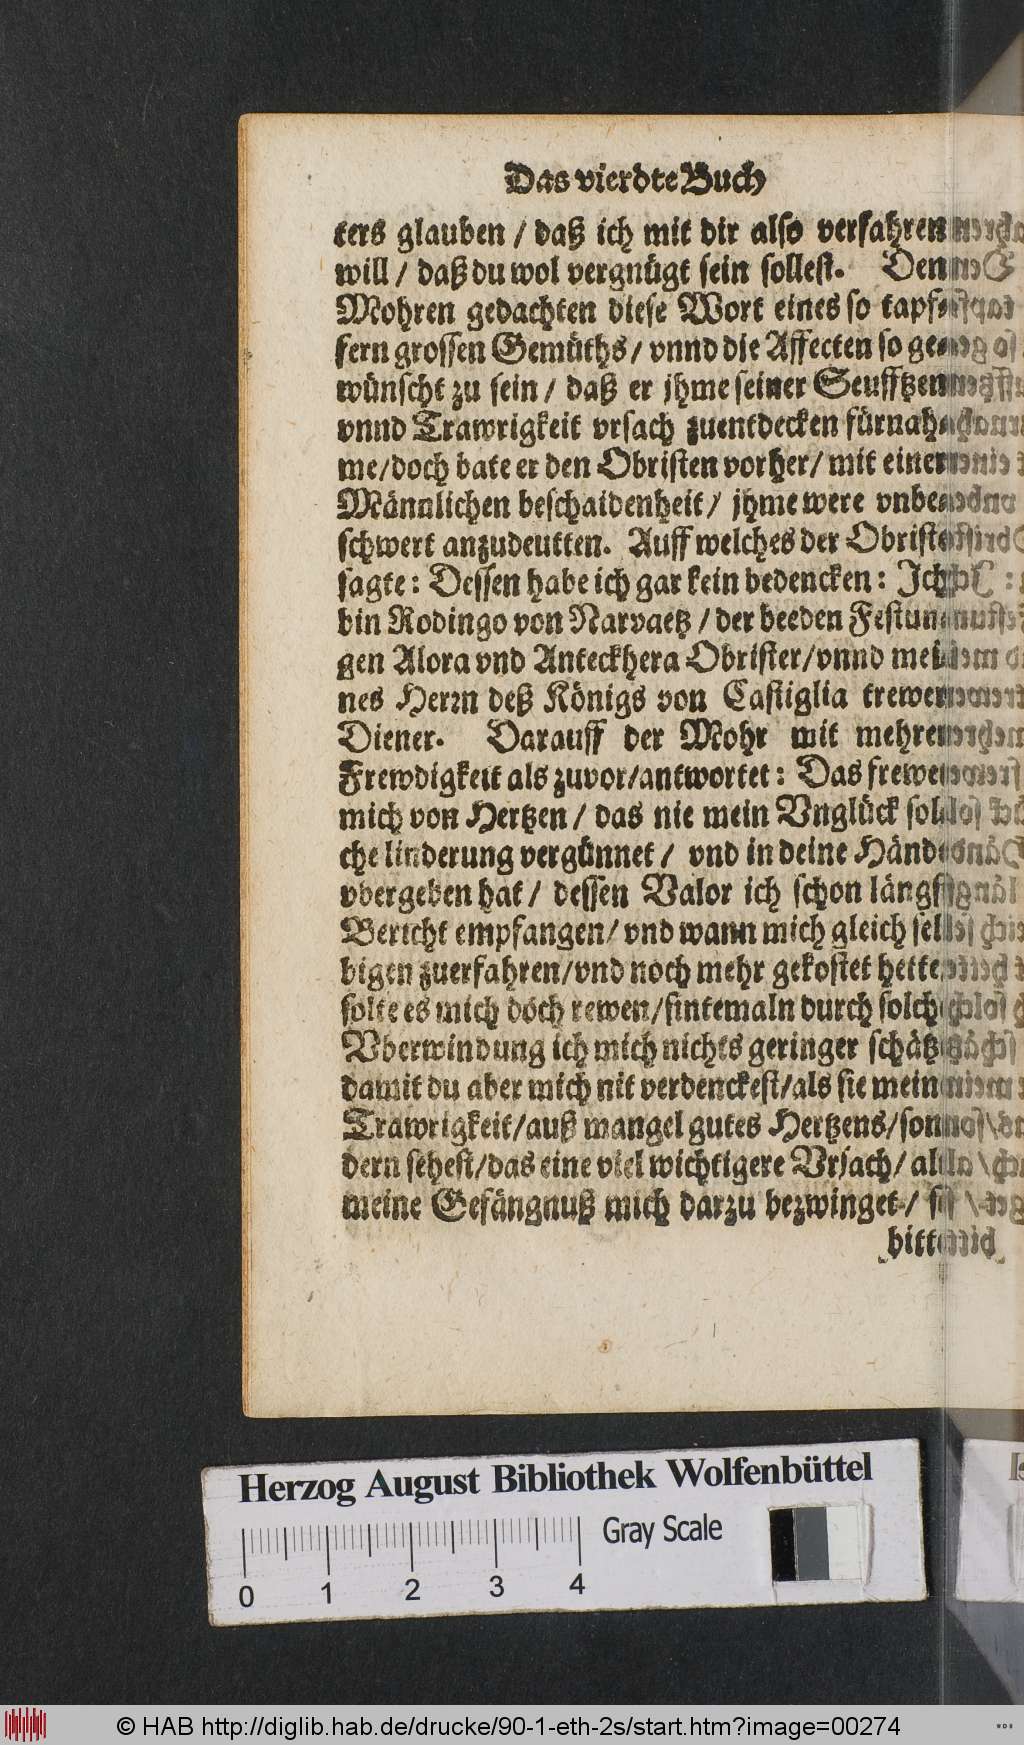 Das vierdte Buch
ters glauben / daß ich mit dir also verfahren
will / daß du wol vergnügt sein sollest. Den
Mohren gedachten diese Wort eines so tapf-
fern grossen Gemüths / vnnd die Affecten so ge-
wünscht zu sein / daß er jhme seiner Seufftzen
vnnd Trawrigkeit vrsach zuentdecken fürnah-
me / doch bate er den Obristen vorher / mit einer
Männlichen beschaidenheit / jhme were vnbe-
schwert anzudeutten. Auff welches der Obriste
sagte: Dessen habe ich gar kein bedencken: Ich
bin Rodingo von Narvaetz / der beeden Festun-
gen Alora vnd Anteckhera Obrister / vnnd mei-
nes Herrn deß Königs von Castiglia trewer
Diener. Darauff der Mohr mit mehrer
Frewdigkeit als zuvor / antwortet: Das frewet
mich von Hertzen / das nie mein Vnglück sol-
che linderung vergünnet / vnd in deine Händ
vbergeben hat / dessen Valor ich schon längst
Bericht empfangen / vnd wann mich gleich sel-
bigen zuerfahren / vnd noch mehr gekostet hette
solte es mich doch rewen / sintemaln durch solch
Vberwindung ich mich nichts geringer schätz
damit du aber mich nit verdenckest / als sie mein
Trawrigkeit / auß wangel gutes Hertzens / son-
dern sehest / das eine viel wichtigere Vrsach / als
meine Gefängnuß mich darzu bezwinget /
bitt
Herzog August Bibliothek Wolfenbüttel
Gray Scale
0 1 2 3 4
© HAB http://diglib.hab.de/drucke/90-1-eth-2s/start.htm?image=00274